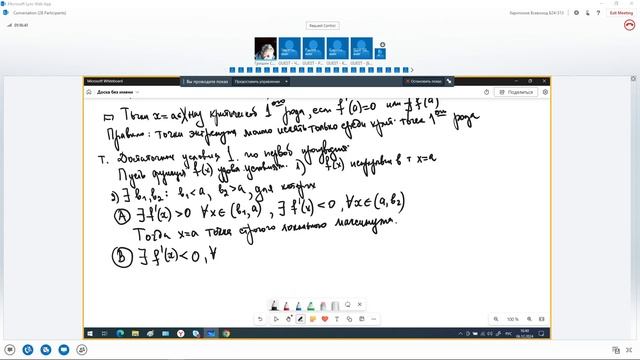 Microsoft Lync Web App
Conversation (28 Participants)
Exit Meeting
Request Control
Microsoft Whiteboard
Вы проводите показ
Предоставить управление
Остановить показ
Доска без имени
Поделиться
Точка x=a∈X наз критической 1ого рода, если f'(a)=0 или ∄f'(a)
Правило: точки экстремума можно искать только среди крит. точек 1ого рода
Т. Достаточные условия 1. по первой производной.
Пусть функция f(x) удовл условиям: 1) f(x) непрерывна в т x=a
2) ∃ b₁,b₂: b₁<a, b₂>a, для которых
(A) ∃f'(x)>0 ∀x∈(b₁,a), ∃f'(x)<0, ∀x∈(a,b₂)
Тогда x=a точка строгого локального максимума.
(B) ∃f'(x)<0, ∀
100 %
РУС
16:40
06.12.2024